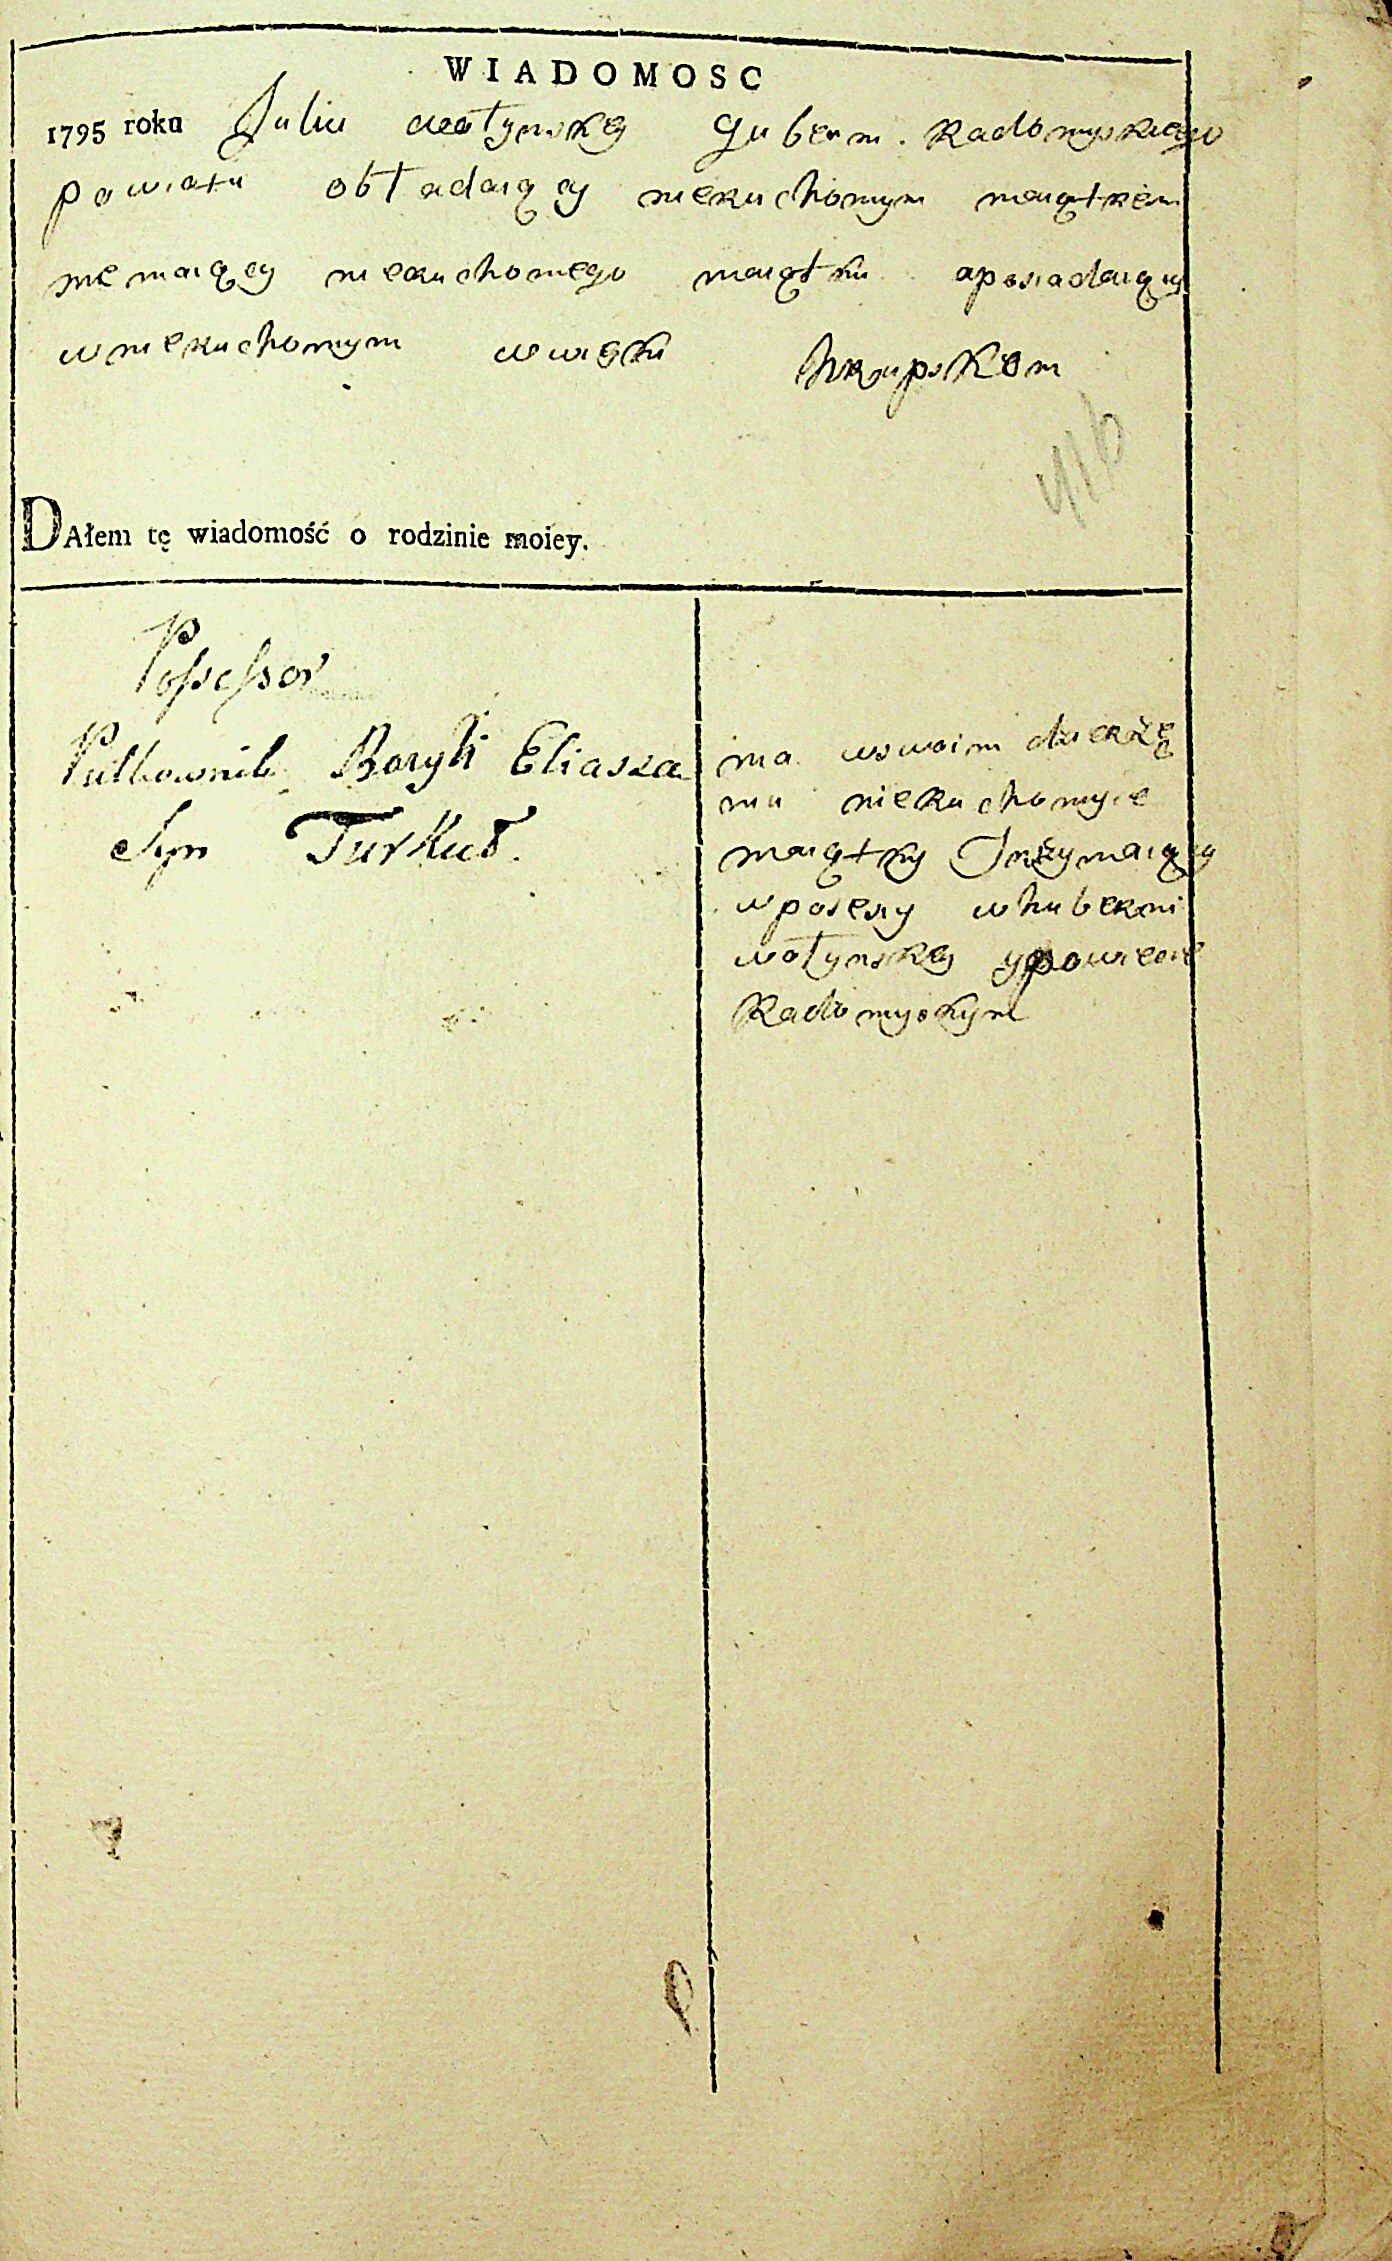 WIADOMOSC
1795 roku Juliu wołynskę Guberni. Radomyskiego
powiatu obładaiący nieruchomym maiątkem
nie maiący nieruchomego maiątku aposiadaiący
wnieruchomym wwięku krupskom
416
DAłem tę wiadomość o rodzinie moiey.
Possessor
Pułkownik Boryß Eliasza
Syn Turkuł.
ma wswoim dzierżę
niu nieruchomyie
maiątky Trzymaiący
wposesy whuberni
wołynskey ypowiecie
Radomyskym